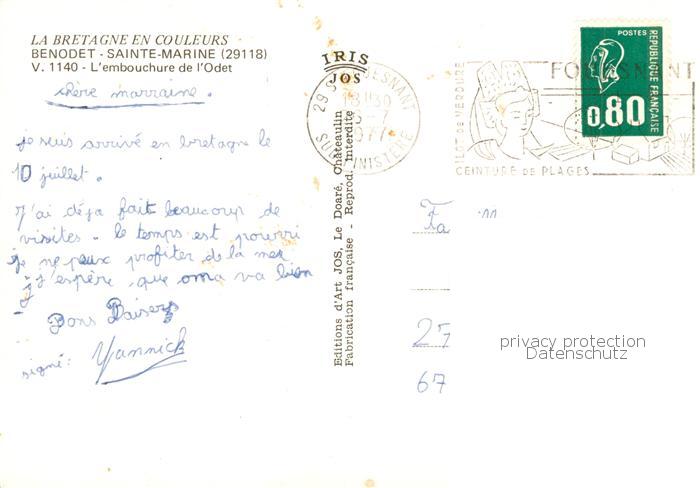 LA BRETAGNE EN COULEURS
BENODET - SAINTE-MARINE (29118)
V. 1140 - L'embouchure de l'Odet
chère marraine.
je suis arrivé en bretagne le
10 juillet.
J'ai déja fait beaucoup de
visites. le temps est pourri
je ne peux profiter de la mer
j'espère que oma va bien
Bons Baisers
signé: Yannick
IRIS
JOS
Editions d'Art JOS, Le Doaré, Châteaulin
Fabrication française - Reprod. interdite
29
18H30
1977
SUD FINISTERE
ILOT DE VERDURE
FOUESNANT
CEINTURE DE PLAGES
POSTES
REPUBLIQUE FRANÇAISE
0,80
Fa
27
67
privacy protection
Datenschutz